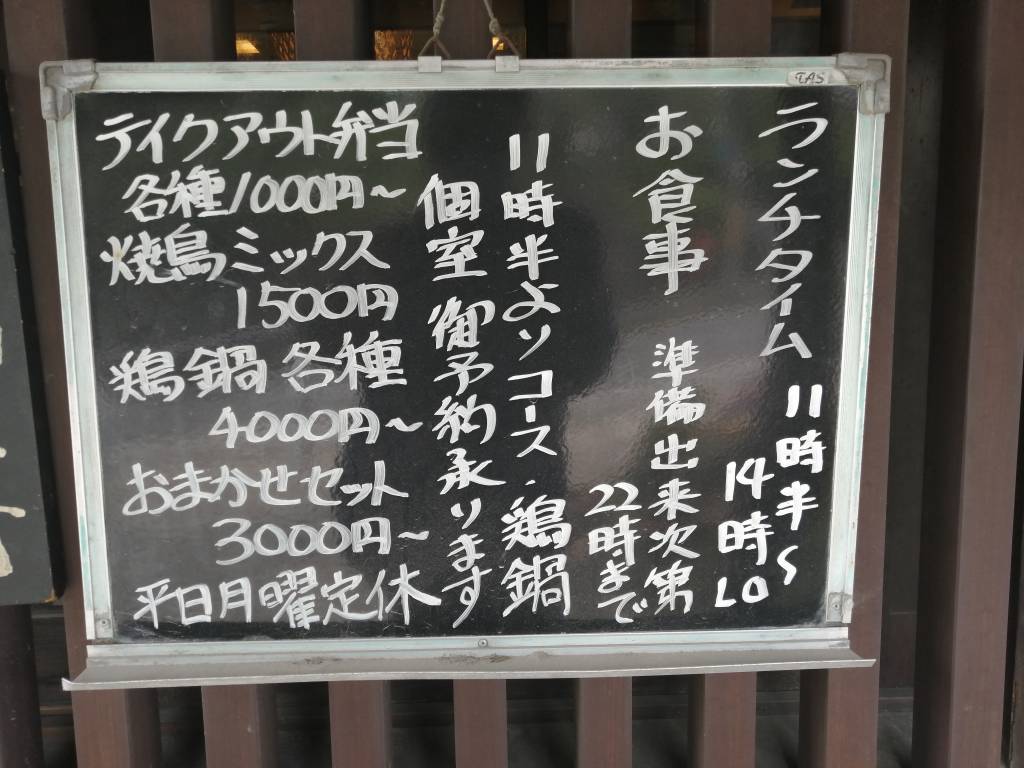 ランチタイム 11時半〜
14時LO
お食事 準備出来次第
22時まで
11時半よりコース・鶏鍋
個室 御予約承ります
テイクアウト弁当
各種1000円〜
焼鳥ミックス
1500円
鶏鍋各種
4000円〜
おまかせセット
3000円〜
平日月曜定休
TAS